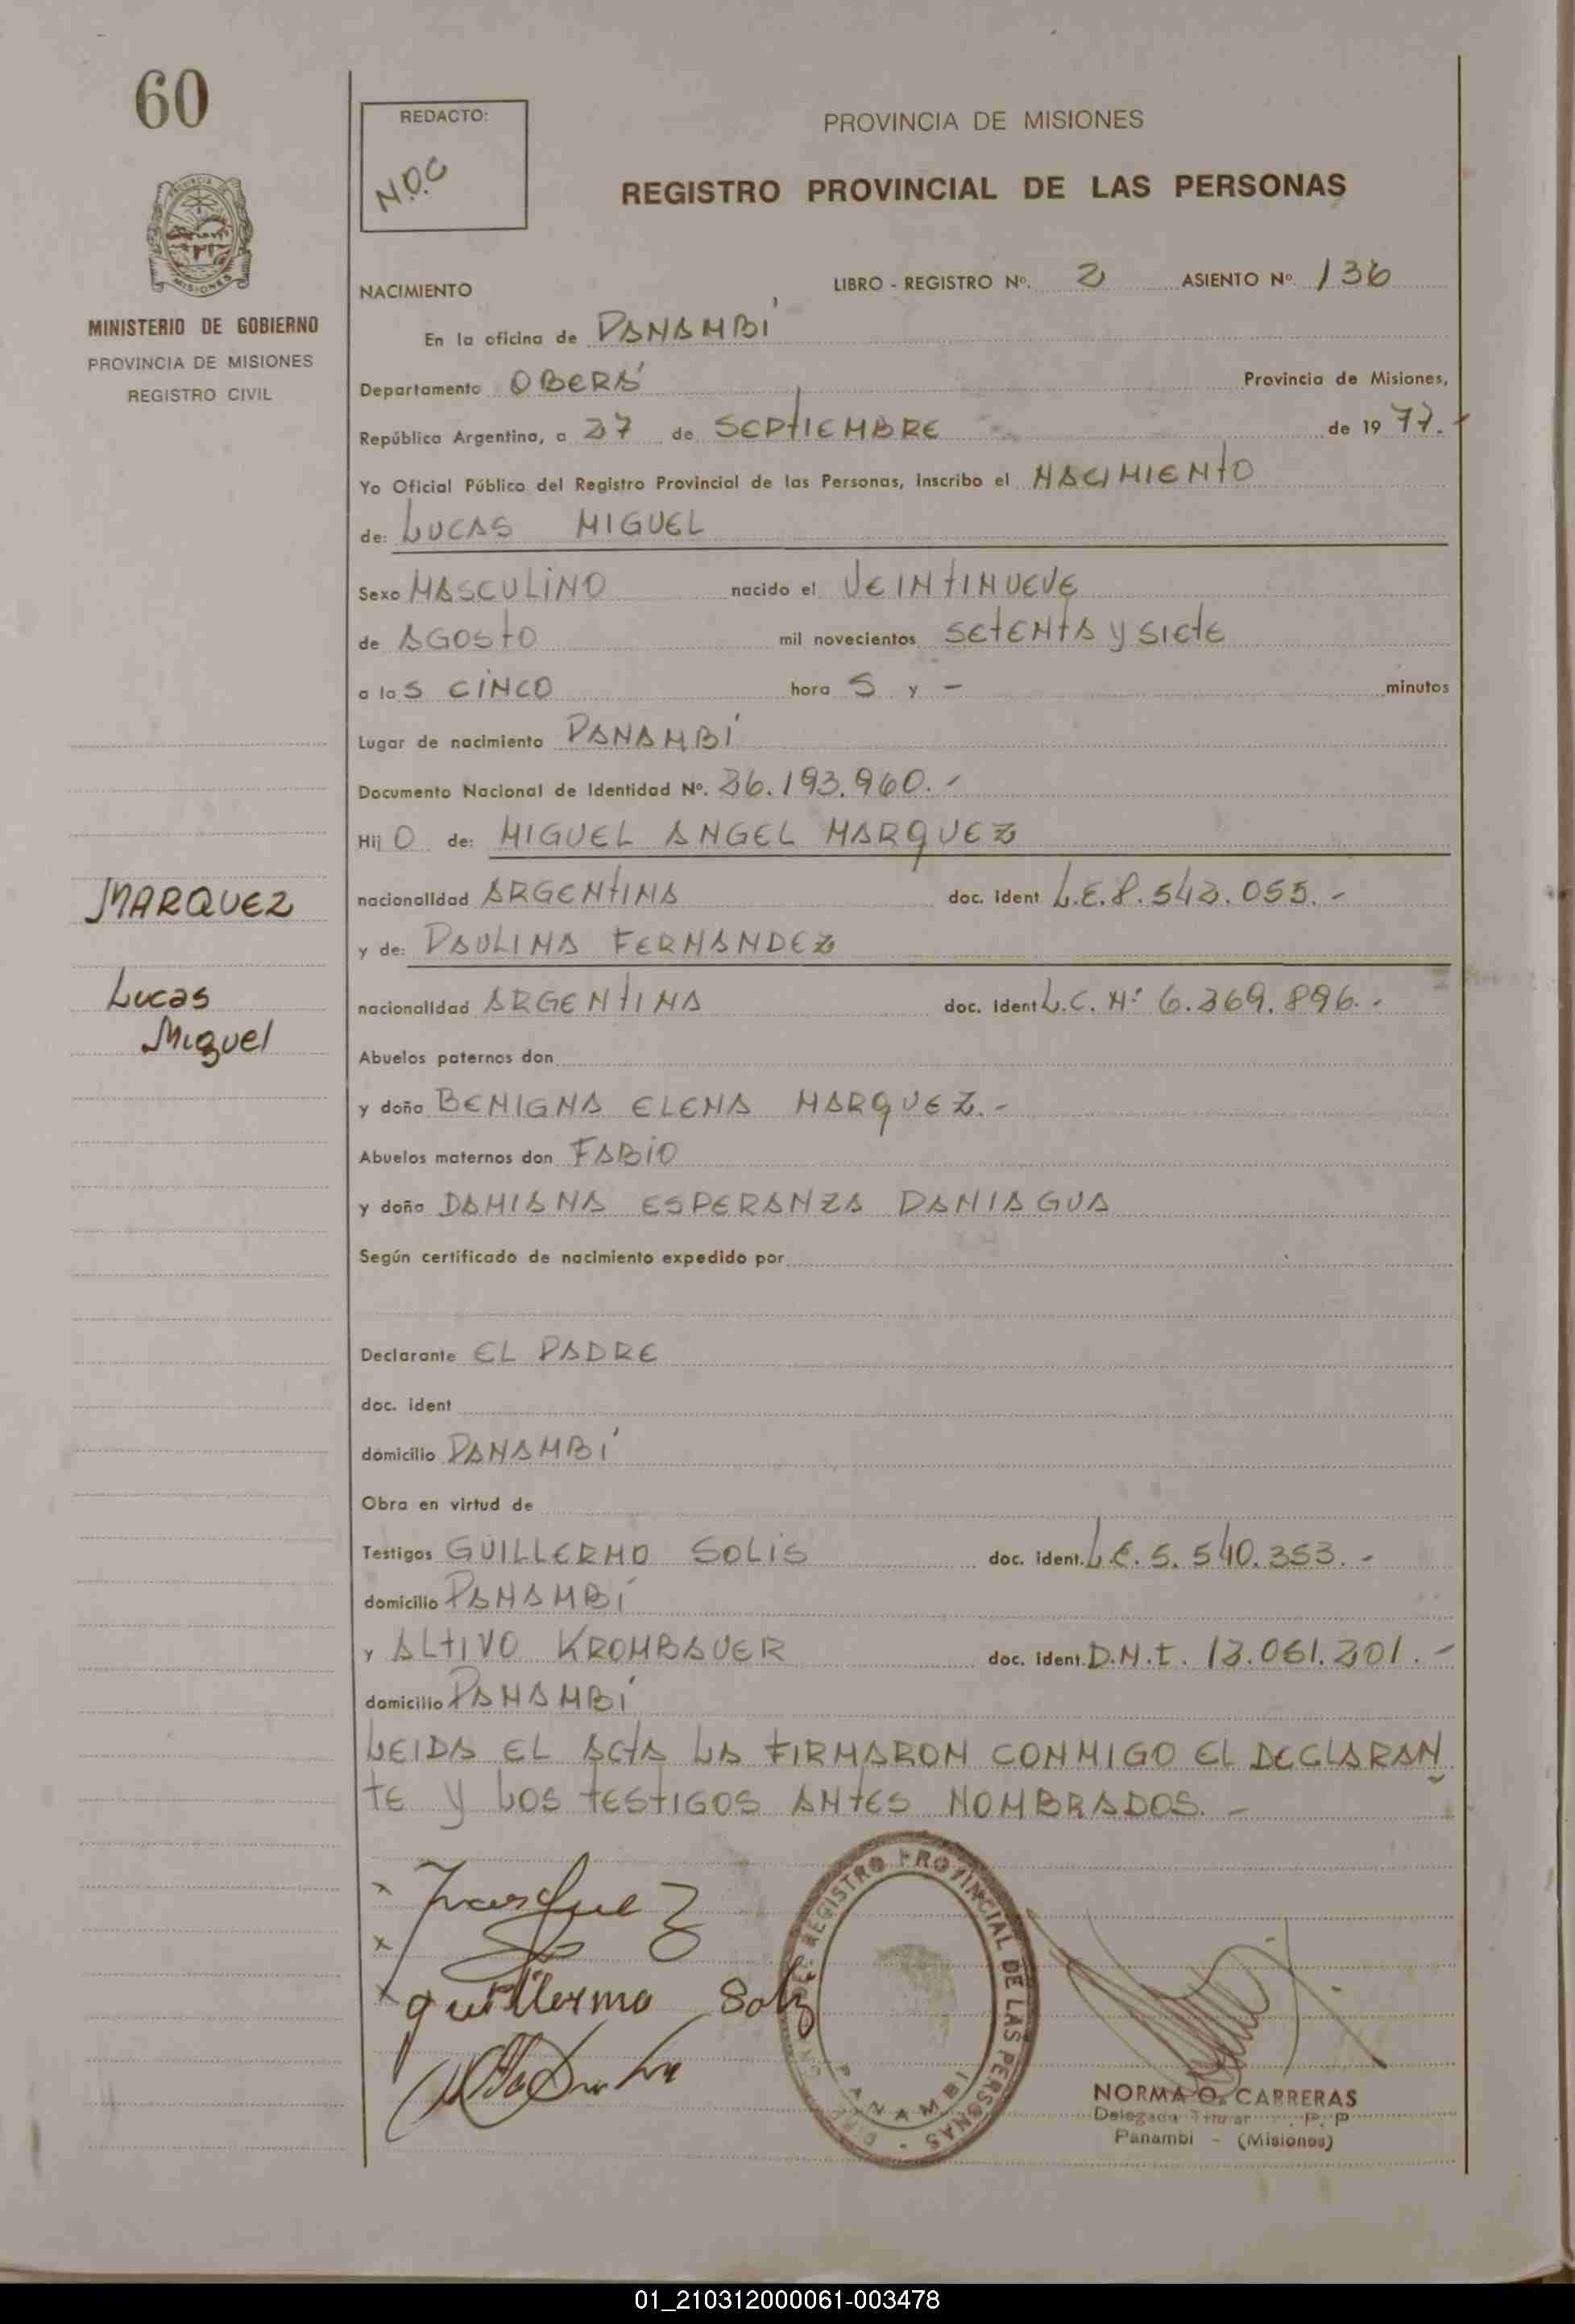 60
MINISTERIO DE GOBIERNO
PROVINCIA DE MISIONES
REGISTRO CIVIL
MARQUEZ
Lucas
Miguel
REDACTO:
N.O.C
PROVINCIA DE MISIONES
REGISTRO PROVINCIAL DE LAS PERSONAS
NACIMIENTO LIBRO - REGISTRO Nº. 2 ASIENTO Nº. 136
En la oficina de PANAMBÍ
Departamento OBERÁ Provincia de Misiones,
República Argentina, a 27 de SEPtIEMBRE de 19 77.-
Yo Oficial Público del Registro Provincial de las Personas, inscribo el NACIMIENtO
de: LUCAS MIGUEL
Sexo MASCULINO nacido el VEINtINUEVE
de AGOStO mil novecientos SEtENtA y SIEtE
a laS CINCO hora S y - minutos
Lugar de nacimiento PANAMBÍ
Documento Nacional de Identidad Nº. 26.193.960.-
Hij O de: MIGUEL ANGEL MARqUEZ
nacionalidad ARGENtINA doc. ident L.E.8.542.055.-
y de: PAULINA FERNANDEZ
nacionalidad ARGENtINA doc. ident L.C. Nº 6.269.896.-
Abuelos paternos don
y doña BENIGNA ELENA MARqUEZ.-
Abuelos maternos don FABIO
y doña DAMIANA ESPERANZA PANIAGUA
Según certificado de nacimiento expedido por
Declarante EL PADRE
doc. ident
domicilio PANAMBÍ
Obra en virtud de
Testigos GUILLERMO SOLIS doc. ident. L.E. 5.540.353.-
domicilio PANAMBÍ
y ALtIVO KROMBAUER doc. ident. D.N.I. 12.061.201.-
domicilio PANAMBÍ
LEIDA EL ACtA LA FIRMARON CONMIGO EL DECLARAN
tE y LOS tEStIGOS ANtES NOMBRADOS.-
x MarqueZ
x
x guillermo Solis
REGISTRO PROVINCIAL DE LAS PERSONAS
PANAMBI
NORMA O. CARRERAS
Delegada Titular
Panambi - (Misiones)
01_210312000061-003478